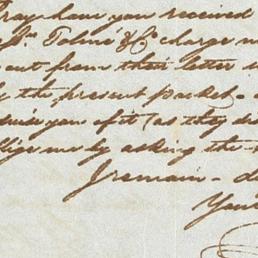 Pray have you received
Tolmé & Co charge m
out from their letter
the present packet -
you of it (as they d
me by asking the
I remain - d
You